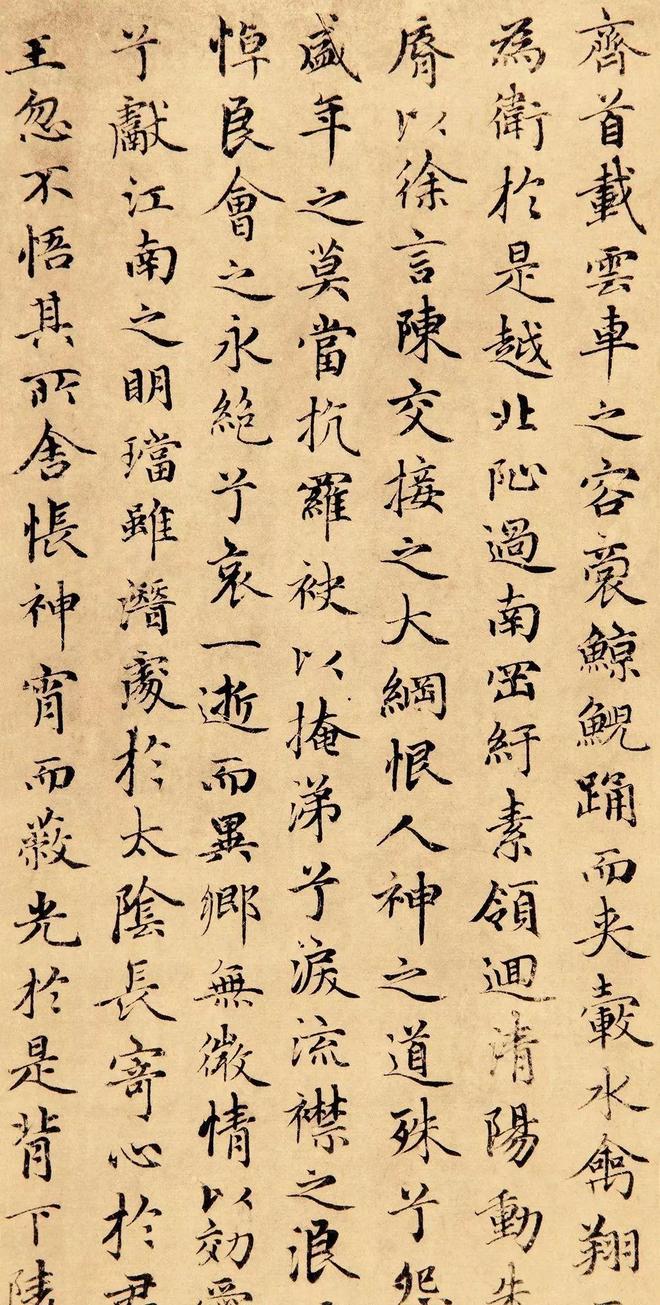 齊首載雲車之容裔鯨鯢踊而夾轂水禽翔
為衛於是越北沚過南罡紆素領迴清陽動朱
脣以徐言陳交接之大綱恨人神之道殊兮怨
盛年之莫當抗羅袂以掩涕兮淚流襟之浪
悼良會之永絕兮哀一逝而異鄉無微情以効愛
兮獻江南之明璫雖潛處於太陰長寄心於君
王忽不悟其所舍悵神宵而蔽光於是背下陵